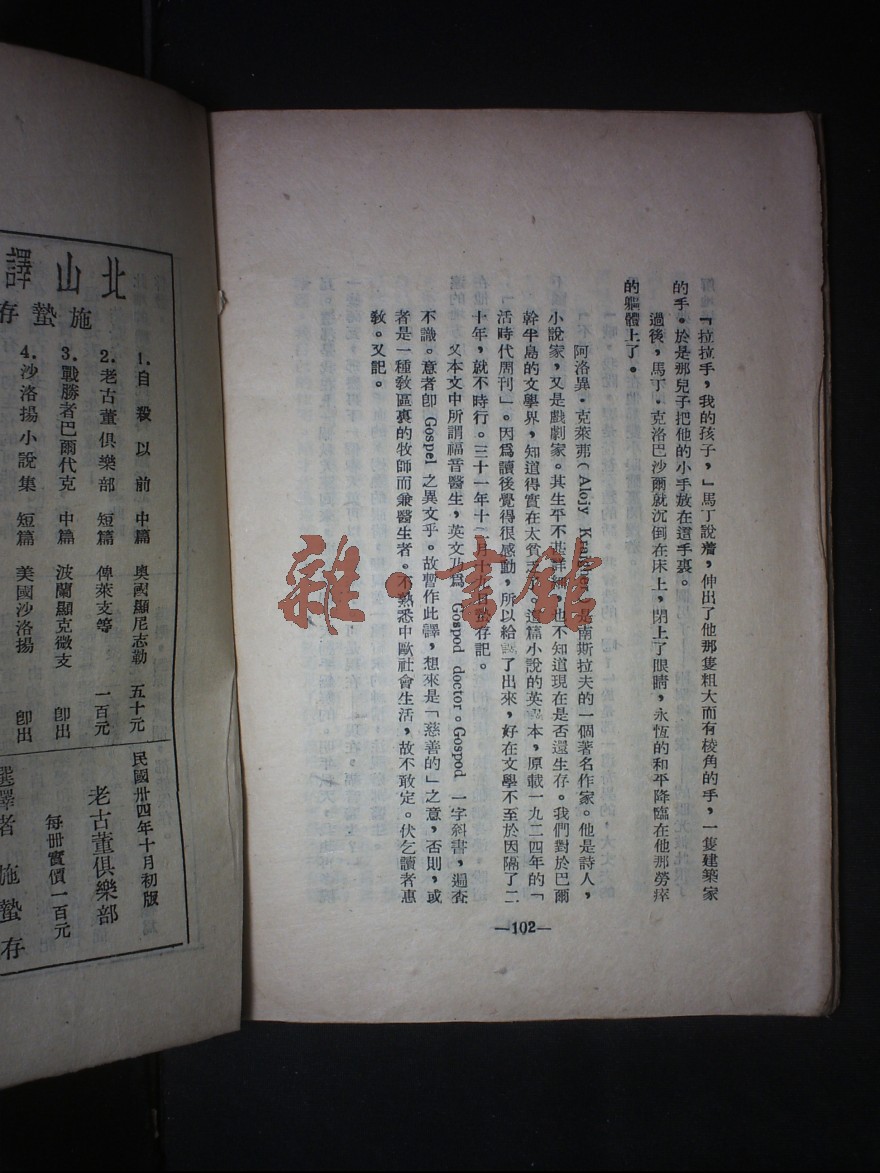 「拉拉手，我的孩子，」馬丁說着，伸出了他那隻粗大而有棱角的手，一隻建築家
的手。於是那兒子把他的小手放在這手裏。
過後，馬丁・克洛巴沙爾就沉倒在床上，閉上了眼睛，永恆的和平降臨在他那勞瘁
的軀體上了。
阿洛異・克萊弗（Alojy Kraigher）是南斯拉夫的一個著名作家。他是詩人，
小說家，又是戲劇家。其生平不甚詳細，也不知道現在是否還生存。我們對於巴爾
幹半島的文學界，知道得實在太貧乏了。這篇小說的英譯本，原載一九二四年的「
活時代周刊」。因爲讀後覺得很感動，所以給譯了出來，好在文學不至於因隔了二
十年，就不時行。三十一年十一月十九日蟄存記。
又本文中所謂福音醫生，英文乃爲 Gospod doctor。Gospod 一字斜書，遍查
不識。意者卽 Gospel 之異文乎。故暫作此譯，想來是「慈善的」之意，否則，或
者是一種敎區裏的牧師而兼醫生者。不熟悉中歐社會生活，故不敢定。伏乞讀者惠
敎。又記。
—102—
雜・書館
北山譯
施蟄存
1．自殺以前 中篇 奧國顯尼志勒 五十元
2．老古董俱樂部 短篇 俾萊支等 一百元
3．戰勝者巴爾代克 中篇 波蘭顯克微支 卽出
4．沙洛揚小說集 短篇 美國沙洛揚 卽出
民國卅四年十月初版
老古董俱樂部
每冊實價一百元
選譯者 施蟄存